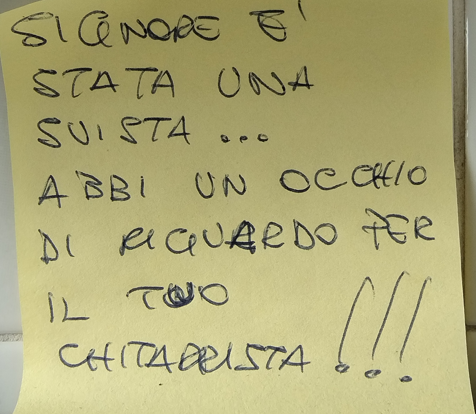 SIGNORE E'
STATA UNA
SVISTA ...
ABBI UN OCCHIO
DI RIGUARDO PER
IL TUO
CHITARRISTA !!!